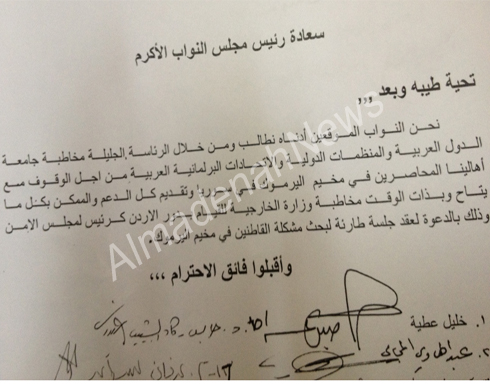 سعادة رئيس مجلس النواب الأكرم
تحية طيبه وبعد ,,,
نحن النواب الموقعين أدناه نطالب ومن خلال الرئاسة الجليلة مخاطبة جامعة
الدول العربية والمنظمات الدولية والاتحادات البرلمانية العربية من اجل الوقوف مع
أهالينا المحاصرين في مخيم اليرموك في سوريا وتقديم كل الدعم والممكن بكل ما
يتاح وبذات الوقت مخاطبة وزارة الخارجية للقيام بدور الاردن كرئيس لمجلس الامن
وذلك بالدعوة لعقد جلسة طارئة لبحث مشكلة القاطنين في مخيم اليرموك .
وأقبلوا فائق الاحترام ,,,
١. خليل عطية
٢.
AlmadenahNews